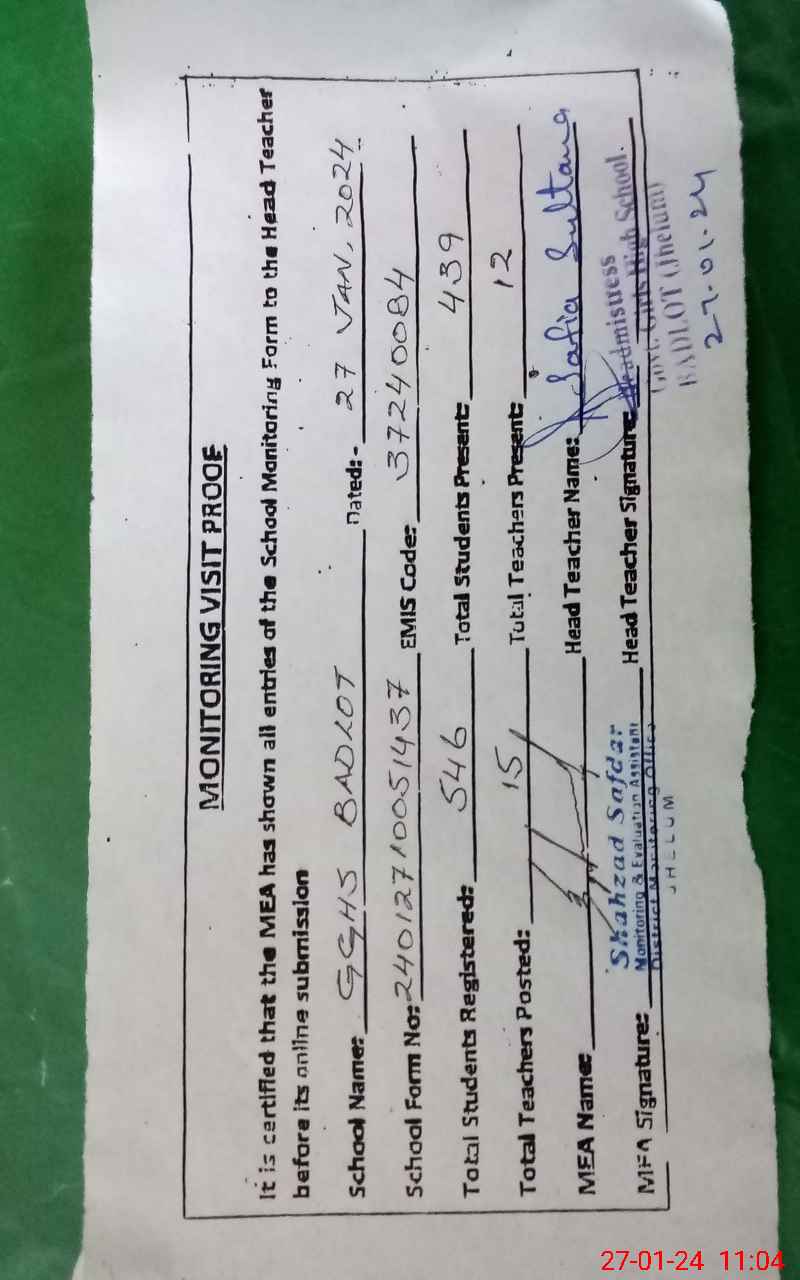 MONITORING VISIT PROOF
It is certified that the MEA has shown all entries of the School Monitoring Form to the Head Teacher
before its online submission
School Name: GGHS BADLOT Dated:- 27 JAN, 2024
School Form No: 24012710051437 EMIS Code: 37240084
Total Students Registered: 546 Total Students Present: 439
Total Teachers Posted: 15 Total Teachers Present: 12
MEA Name: Head Teacher Name: Safia Sultana
Shahzad Safdar
Monitoring & Evaluation Assistant
District Monitoring Office
JHELUM
MEA Signature: Head Teacher Signature:
Headmistress
Govt. Girls High School.
BADLOT (Jhelum)
27-01-24
27-01-24 11:04